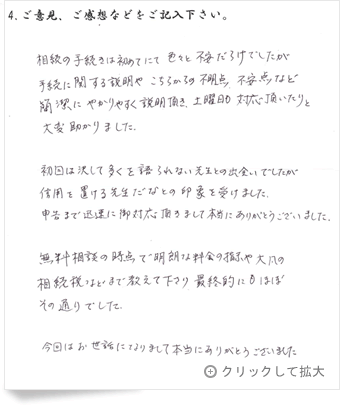 4. ご意見、ご感想などをご記入下さい。
相続の手続きは初めてにて色々と不安だらけでしたが
手続に関する説明やこちらからの不明点、不安点など
簡潔にわかりやすく説明頂き、土曜日も対応頂いたりと
大変助かりました。
初回は決して多くを語られない先生との出会いでしたが
信用を置ける先生だなとの印象を受けました。
申告まで迅速に御対応頂きまして本当にありがとうございました。
無料相談の時点で明朗な料金の指示や大凡の
相続税などまで教えて下さり最終的にもほぼ
その通りでした。
今回はお世話になりまして本当にありがとうございました
クリックして拡大